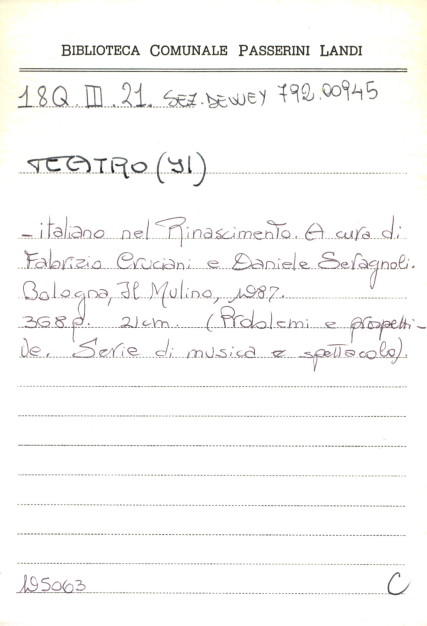 BIBLIOTECA COMUNALE PASSERINI LANDI
18Q III 21. SEZ. DEWEY 792.00945
TEATRO (Il)
- italiano nel Rinascimento. A cura di
Fabrizio Cruciani e Daniele Seragnoli.
Bologna, Il Mulino, 1987.
368 p. 21 cm. (Problemi e prospetti-
ve. Serie di musica e spettacolo).
195063 C